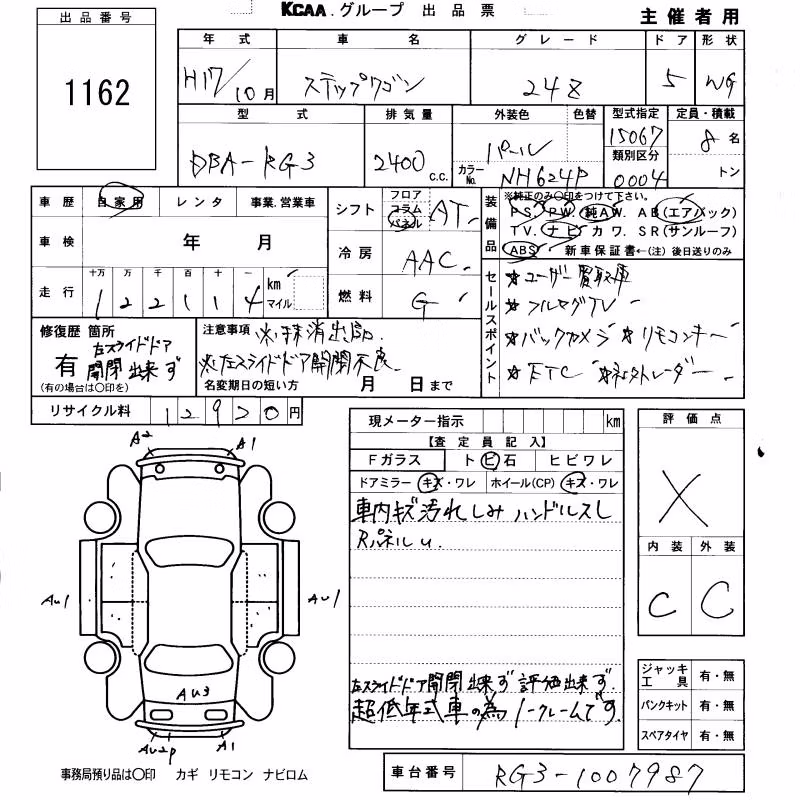 KCAA.グループ 出品票
主催者用
出品番号
1162
年式 車名 グレード ドア 形状
H17/10月 ステップワゴン 24Z 5 WG
型式 排気量 外装色 色替 型式指定 定員・積載
DBA-RG3 2400c.c. パール 15067 8名
類別区分
カラーNo. NH624P 0004 トン
車歴 自家用 レンタ 事業.営業車
シフト フロア コラム パネル AT
装備品 ※純正のみ○印をつけて下さい。
PS. PW. 純AW. AB(エアバック)
TV. ナビ カワ. SR(サンルーフ)
ABS 新車保証書←(注)後日送りのみ
車検 年 月
冷房 AAC
走行 十万 万 千 百 十 一 km マイル
122114
燃料 G
セールスポイント
★ユーザー買取車
★フルセグTV
★バックカメラ ★リモコンキー
★ETC
修復歴 箇所
有
左スライドドア
開閉出来ず
(有の場合は○印を)
注意事項 ※抹消出品.
※左スライドドア開閉不良.
名変期日の短い方 月 日まで
リサイクル料 12920円
現メーター指示 km
【査定員記入】
Fガラス ト ビ 石 ヒビワレ
ドアミラー キズ・ワレ ホイール(CP) キズ・ワレ
車内キズ汚れしみ ハンドルスレ
Rパネルu.
左スライドドア開閉出来ず評価出来ず.
超低年式車の為ノークレームです.
評価点
X
内装 外装
C C
ジャッキ工具 有・無
パンクキット 有・無
スペアタイヤ 有・無
A2 A1
AU1 AU1
AU3
AU2P A1
事務局預り品は○印 カギ リモコン ナビロム
車台番号 RG3-1007987